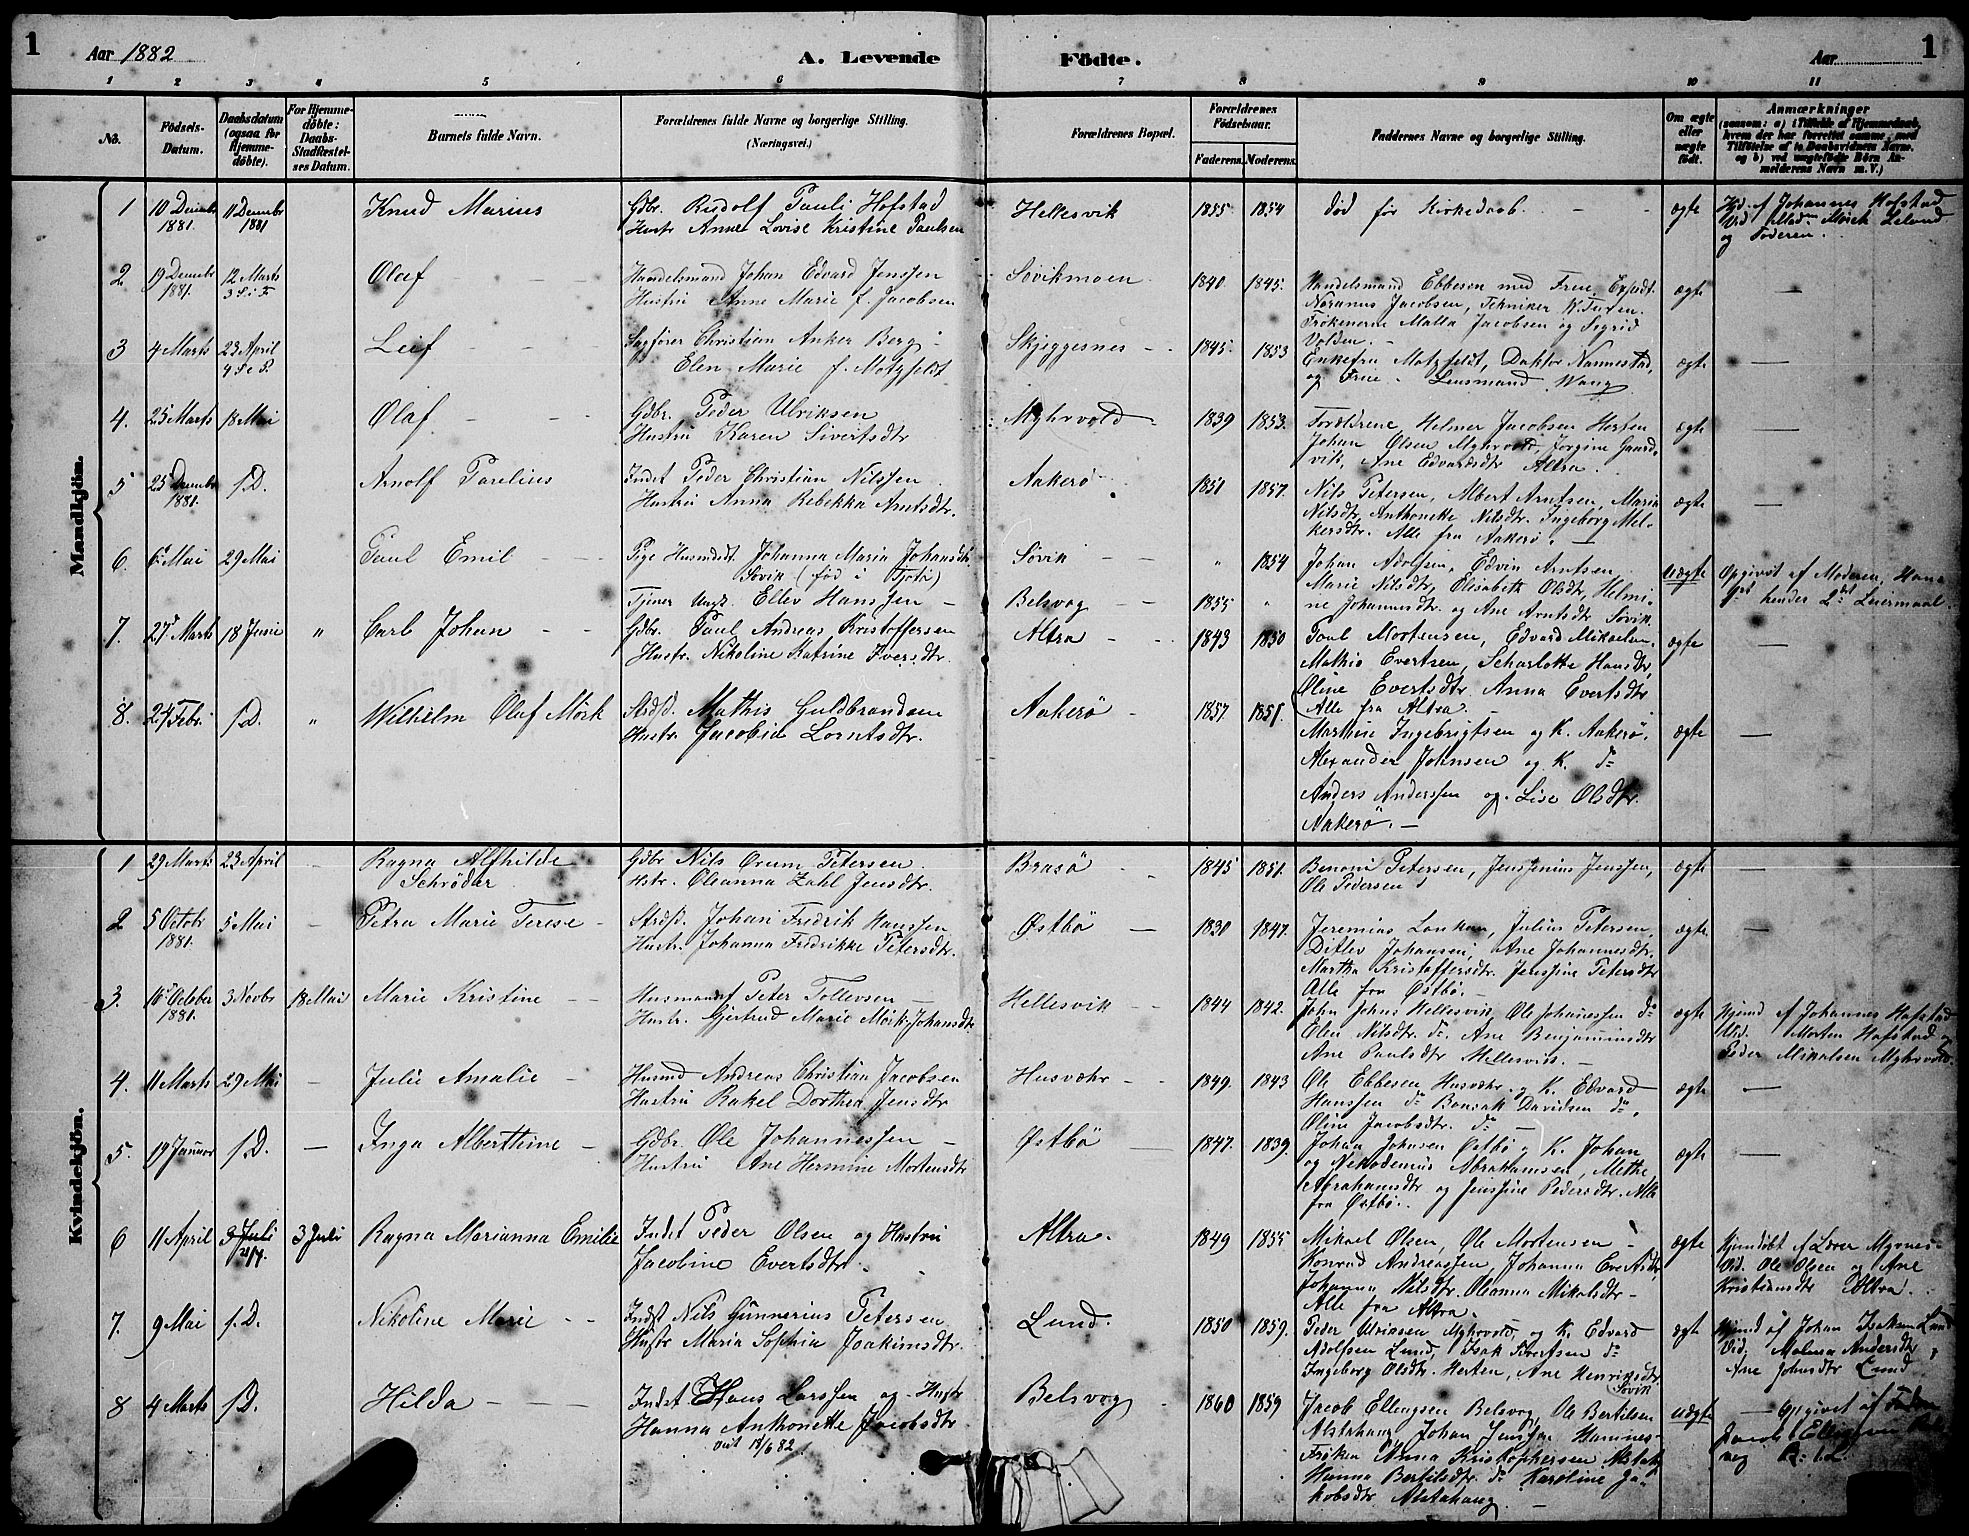 1
Aar 1882
A. Levende
Födte.
Aar
1
1 2 3 4 5 6 7 8 9 10 11
No.
Födsels-
Datum.
Daabsdatum
(ogsaa for
Hjemme-
döbte).
For Hjemme-
döbte:
Daabs-
Stadfæstel-
ses Datum.
Barnets fulde Navn.
Forældrenes fulde Navne og borgerlige Stilling.
(Næringsvei.)
Forældrenes Bopæl.
Forældrenes
Födselsaar.
Faderens. Moderens.
Faddernes Navne og borgerlige Stilling.
Om ægte
eller
uægte
født.
Anmærkninger
(saasom: a) i Tilfælde af Hjemmedaab,
hvem der har forrettet samme, med
Tilföielse af to Daabsvidners Navne,
og b) ved uægtefödte Börn An-
melderens Navn m. V.)
Mandkjön.
1 10 Decembr 1881. 11 Decembr 1881 Knud Marius
Gdbr. Rudolf Pauli Hofstad
Hustr. Anne Lovise Kristine Paulsen
Hellesvik 1855 1854 død før Kirkedaab. ægte
Hjd. af Johannes Hofstad
Vid Mörch Leland
og Faderen.
2. 19 Decembr 1881. 12 Marts 3 S. i F. Olaf
Handelsmand Johan Edvard Jenssen
Hustru Anne Marie f. Jacobsen
Søvikmoen 1840 1845.
Handelsmand Ebbesen med Frue, Expedt.
Jacobsen, Tekniker
Frøkenerne Malla Jacobsen og Sigrid
Volden.
ægte —
3 4 Marts 23 April Leif
Sagfører Christian Anker Berg
Elen Marie f. Motzfeldt
Skjeggesnes 1845. 1853
Enkefru Motzfeldt, Doktor Nannestad,
og Frue. Lensmand Wang
ægte —
4. 25 Marts 18 Mai Olaf
Gdbr. Peder Ulriksen
Hustru Karen Sivertsdtr
Myhrvold 1839 1853.
Forældrene, Helmer Jacobsen Herten
Johan Olsen Myhrvold, Jorgine Gaard-
vik, Ane Edvardsdtr Altra
ægte —
5 25 Decembr 1881. s. D. Arnolf Paulius
Indst Peder Christian Nilssen
Hustru Anna Rebekka Arntsdtr.
Aakerø 1851 1857.
Nils Petersen, Albert Arntsen, Maria
Nilsdtr, Anthonette Nilsdtr. Ingeborg Mel-
kersdtr. Alle fra Aakerø.
ægte —
6. 6 Mai 29 Mai Paul Emil
Pige Husmdt. Johanna Maria Johansdtr
Søvik (fød i Tjøtø)
Tjener Ungk. Ellev Hanssen
Søvik " 1854
Belsvog 1855 "
Johan Adolfsen, Edvin Arntsen
Marie Nilsdtr, Elisabeth Olsdtr, Helmi-
ne Johannesdtr. og Ane Arntsdtr Søvik
uægte
Opgivet af Moderen, Hans
1ste hendes 2det Leiermaal.
7. 27 Marts 18 Juni " Carl Johan
Gdbr. Paul Andreas Kristoffersen
Hustr. Nikoline Katrine Iversdtr.
Altra 1843 1850
Poul Mortensen, Edvard Mikaelsen
Mathis Evertsen, Scharlotte Hansdtr,
Oline Evertsdtr. Anna Evertsdtr
Alle fra Altra.
ægte —
8. 24 Febr. s. D. " Wilhelm Olaf Mörk
Strdsd. Mathis Guldbrandsen
Hustr. Jacobie Lorntsdtr.
Aakerö 1857 1851.
Marthin Ingebrigtsen og K. Aakerö.
Alexander Johnsen og K. do
Anders Anderssen og Lise Olsdtr.
Aakerö. —
ægte —
Kvindekjön.
1 29 Marts 23 April — Ragna Alfhilde
Schrøder
Gdbr Nils Orum Petersen
Hstr. Oleanna Zahl Jensdtr.
Brasö 1845 1851.
Benoni Petersen, Jenssenius Jenssen,
Ole Pedersen
ægte —
2 5 Octobr 1881. 5 Mai — Petra Marie Terese
Strdsd. Johan Fredrik Hanssen
Hustr. Johanna Fredrikke Petersdtr.
Østbö 1830 1847.
Jeremias Lonkan, Julius Petersen,
Ditlev Johansen, Ane Johannesdtr.
Martha Kristoffersdtr. Jenssine Petersdtr
Alle fra Østbö.
ægte. —
3. 16 October 1881. 3 Novbr 18 Mai Marie Kristine
Husmand Peter Tollevsen
Hustr. Gjertrud Marie Mörk Johansdtr
Hellesvik 1844 1842.
John Johns Hellesvik, Ole Johanssen do
Elen Nilsdtr. do. Ane Benjaminsdtr
Ane Paulsdtr Hellesvik.
ægte
Hjmd af Johannes Hofstad
Vid. Morten Hofstad og
Peder Mikalsen Myhrvold.
4. 11 Marts 29 Mai — Julie Amalie
Husmd Andreas Christian Jacobsen
Hustru Rakel Dorthea Jensdtr
Husvær 1849. 1843
Ole Ebbesen Husvær og K. Edvard
Hanssen do Davidsen do,
Oline Jacobsdtr. do
ægte —
5. 19 Januar s. D. — Inga Alberthine
Gdbr. Ole Johannessen
Hustru Ane Hermine Mortensdtr
Østbö 1847. 1839.
Johan Johnsen Østbö og K. Johan
og Nekodemus Abrahamsen, Methe
Abrahamsdtr og Jenssine Pedersdtr. Alle
fra Østbö.
ægte —
6 11 April 3 Juli 3 Juli Ragna Marianna Emilie
Indst Peder Olsen og Hustru
Jacobine Evertsdtr.
Altra. 1849 1855
Mikael Olsen, Ole Mortensen
Konrad Andreassen, Johanna Evertsdtr,
Johanna Nilsdtr. Oleanna Mikalsdtr
Alle fra Altra.
ægte
Hjemdöbt af Lærer Myrnes.
Vid. Ole Olsen og Ane
Kristiansdtr Altra.
7. 9 Mai s. D. Nikoline Marie
Indst Nils Gunnerius Petersen
Hustr Maria Sophia Joakimsdtr.
Lund. 1850 1859.
Peder Ulriksen Myhrvold, og K. Edvard
Adolfsen Lund, Isak Sivertsen do
Ingeborg Olsdtr. Herten, Ane Henriksdtr.
Søvik
ægte
Hjmd af Johan Isaksen Lund
Vid. Malena Andersdtr
Ane Johnsdtr Lund
8 4 Marts s. D. Hilda
Indst Hans Larssen og Hustr
Hanna Anthonette Jacobsdtr
viet 18/6 82
Belsvog 1860 1859
Jacob Ellingsen Belsvog, Ole Bertilsen
Alstahaug, Johan Jenssen Hamnes-
Frøken Anna Kristophersen Alstah.
Hanna Bertilsdtr. do Karoline Ja-
kobsdtr Alstahaug
uægte
— Opgivet af Faderen
Jacob Ellingsen Bels-
vog